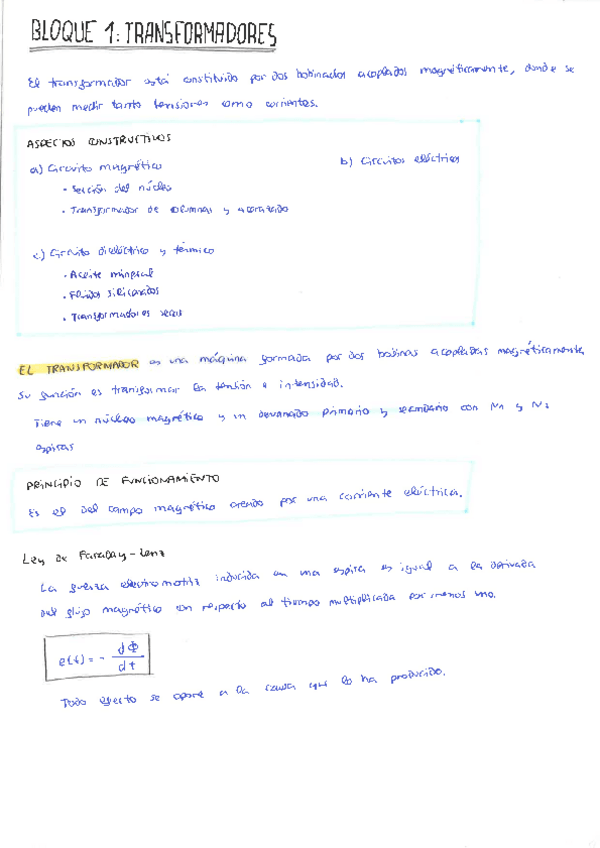 BLOQUE 1: TRANSFORMADORES
El transformador está constituido por dos bobinados acoplados magnéticamente, donde se
pueden medir tanto tensiones como corrientes.
ASPECTOS CONSTRUCTIVOS
a) Circuito magnético
b) Circuitos eléctricos
· Sección del núcleo
· Transformador de columnas y acorazado
c) Circuito dieléctrico y térmico
· Aceite mineral
· Fluidos siliconados
· Transformadores secos
EL TRANSFORMADOR es una máquina formada por dos bobinas acopladas magnéticamente,
su función es transformar la tensión e intensidad.
Tiene un núcleo magnético y un devanado primario y secundario con N1 y N2
espiras
PRINCIPIO DE FUNCIONAMIENTO
Es el del campo magnético creado por una corriente eléctrica.
Ley de Faraday-Lenz
La fuerza electromotriz inducida en una espira es igual a la derivada
del flujo magnético con respecto al tiempo multiplicada por menos uno.
e(t) = - dΦ/dt
Todo efecto se opone a la causa que lo ha producido.